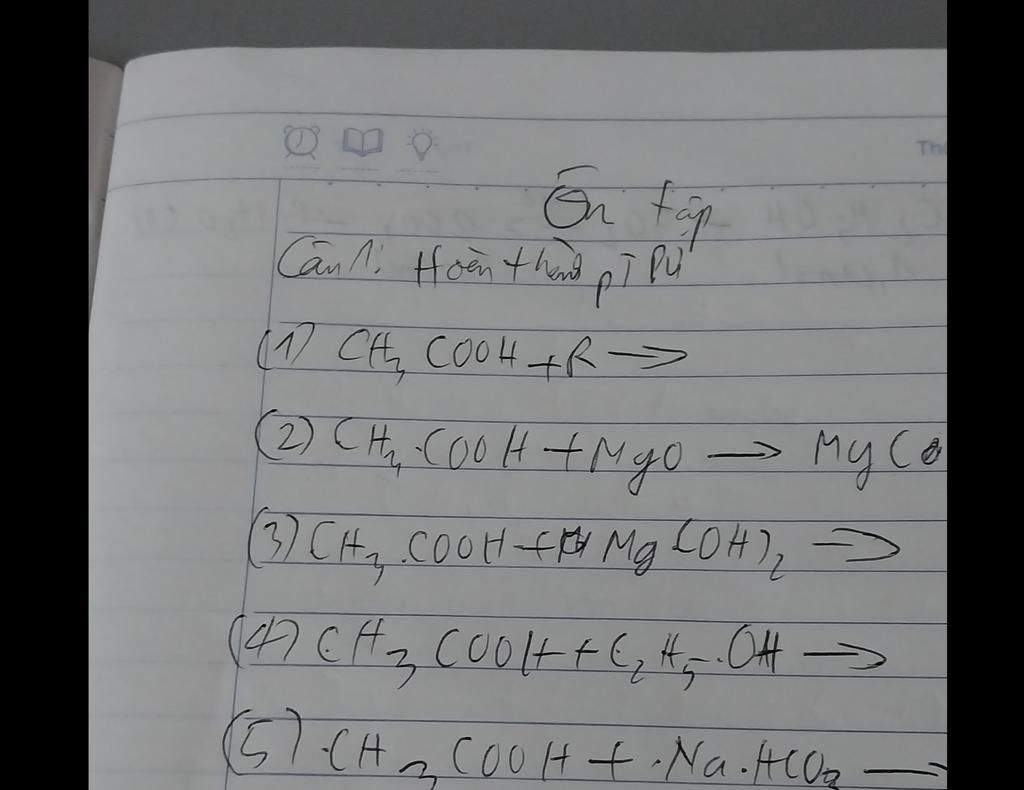 Th
Ôn tập
Câu 1: Hoàn thành PTPƯ
(1) CH3 COOH + R →
(2) CH3.COOH + MgO → Mg C
(3) CH3.COOH + Mg(OH)2 →
(4) CH3 COOH + C2H5.OH →
(5) .CH3 COOH + .Na.HCO3 →